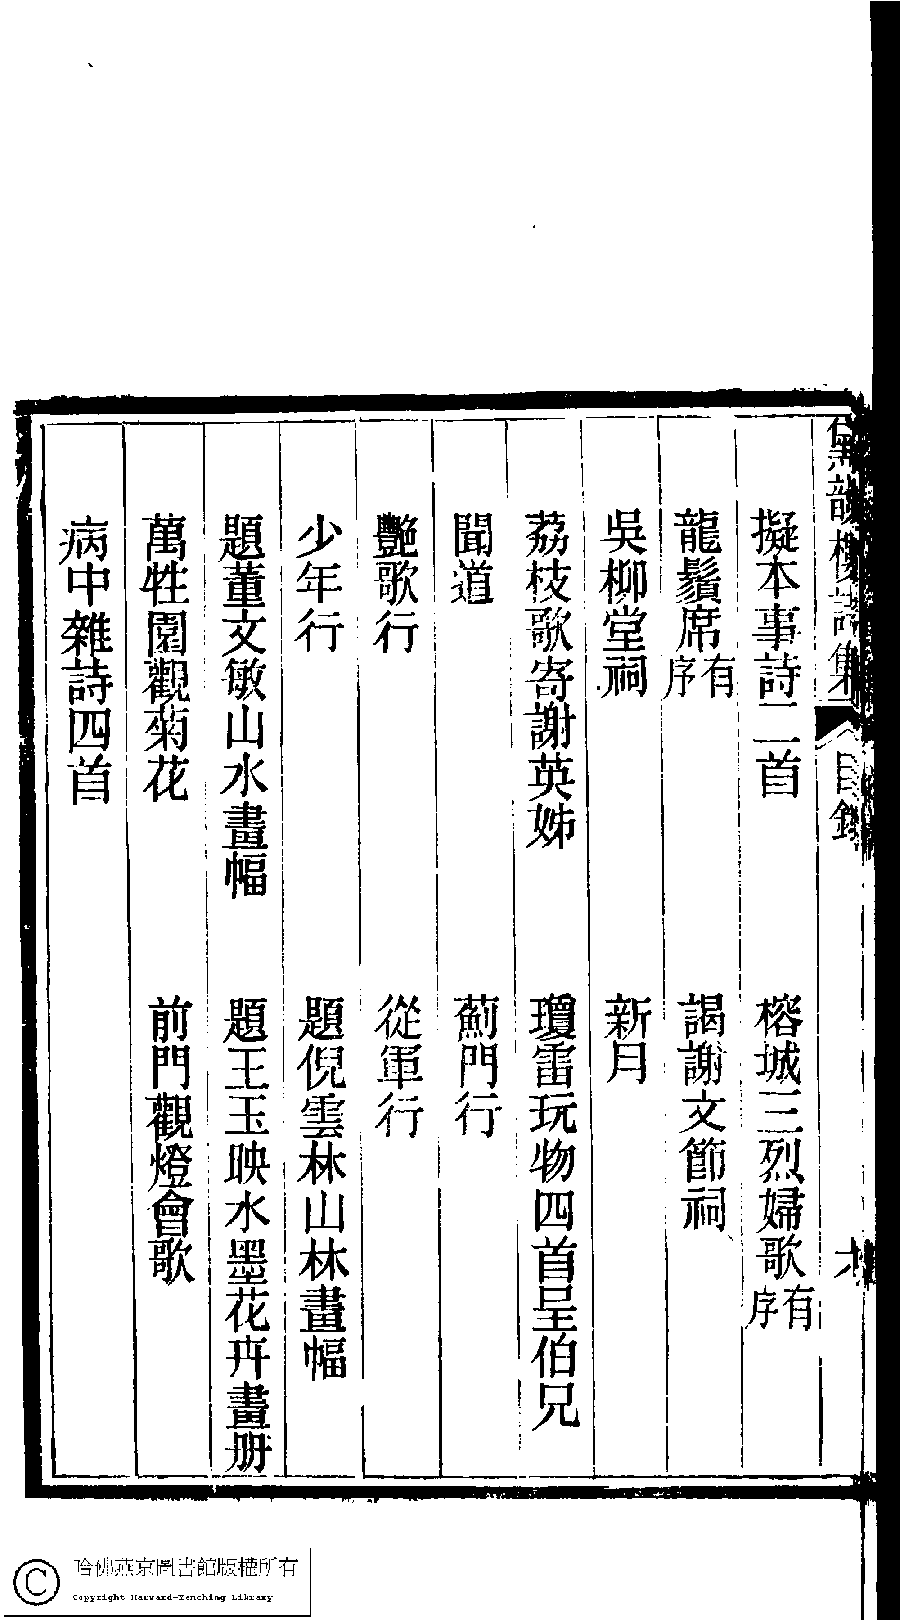 黛韻樓詩集 目錄
擬本事詩二首 榕城三烈婦歌有序
龍鬚席有序 謁謝文節祠
吳柳堂祠 新月
荔枝歌寄謝英姊 瓊雷玩物四首呈伯兄
聞道 薊門行
艷歌行 從軍行
少年行 題倪雲林山林畫幅
題董文敏山水畫幅 題王玉映水墨花卉畫册
萬牲園觀菊花 前門觀燈會歌
病中雜詩四首
哈佛燕京圖書館版權所有
Copyright Harvard-Yenching Library